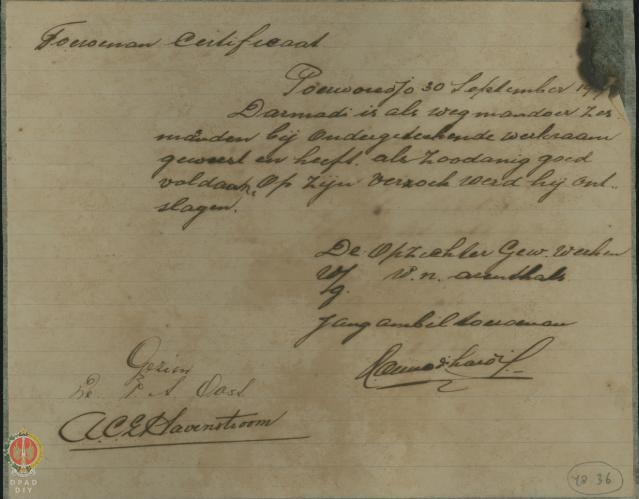 Toeroenan Certificaat
Poerworedjo 30 September
Darmadi is als wegmandoer zes
maanden bij Ondergeteekende werkzaam
geweest en heeft als Zoodanig goed
voldaan. Op zijn Verzoek werd hij ont-
slagen.
De Opzichter Gew. Werken
W/g.
Jang ambil toeroenan
Gezien
ACE Havenstroom
DPAD
DIY
36